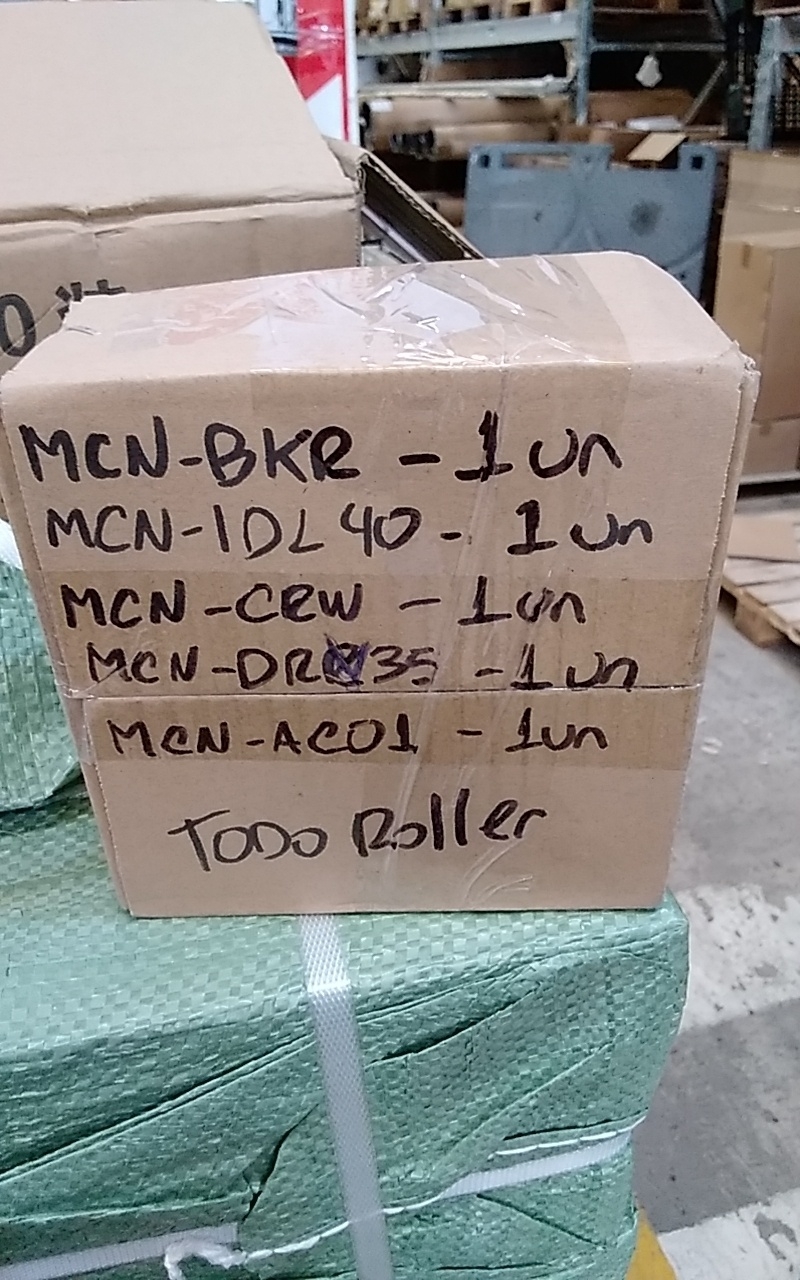 MCN-BKR - 1 un
MCN-IDL 40 - 1 un
MCN - CRW - 1 un
- 1 un
MCN - AC01 - 1 un
TODO Roller